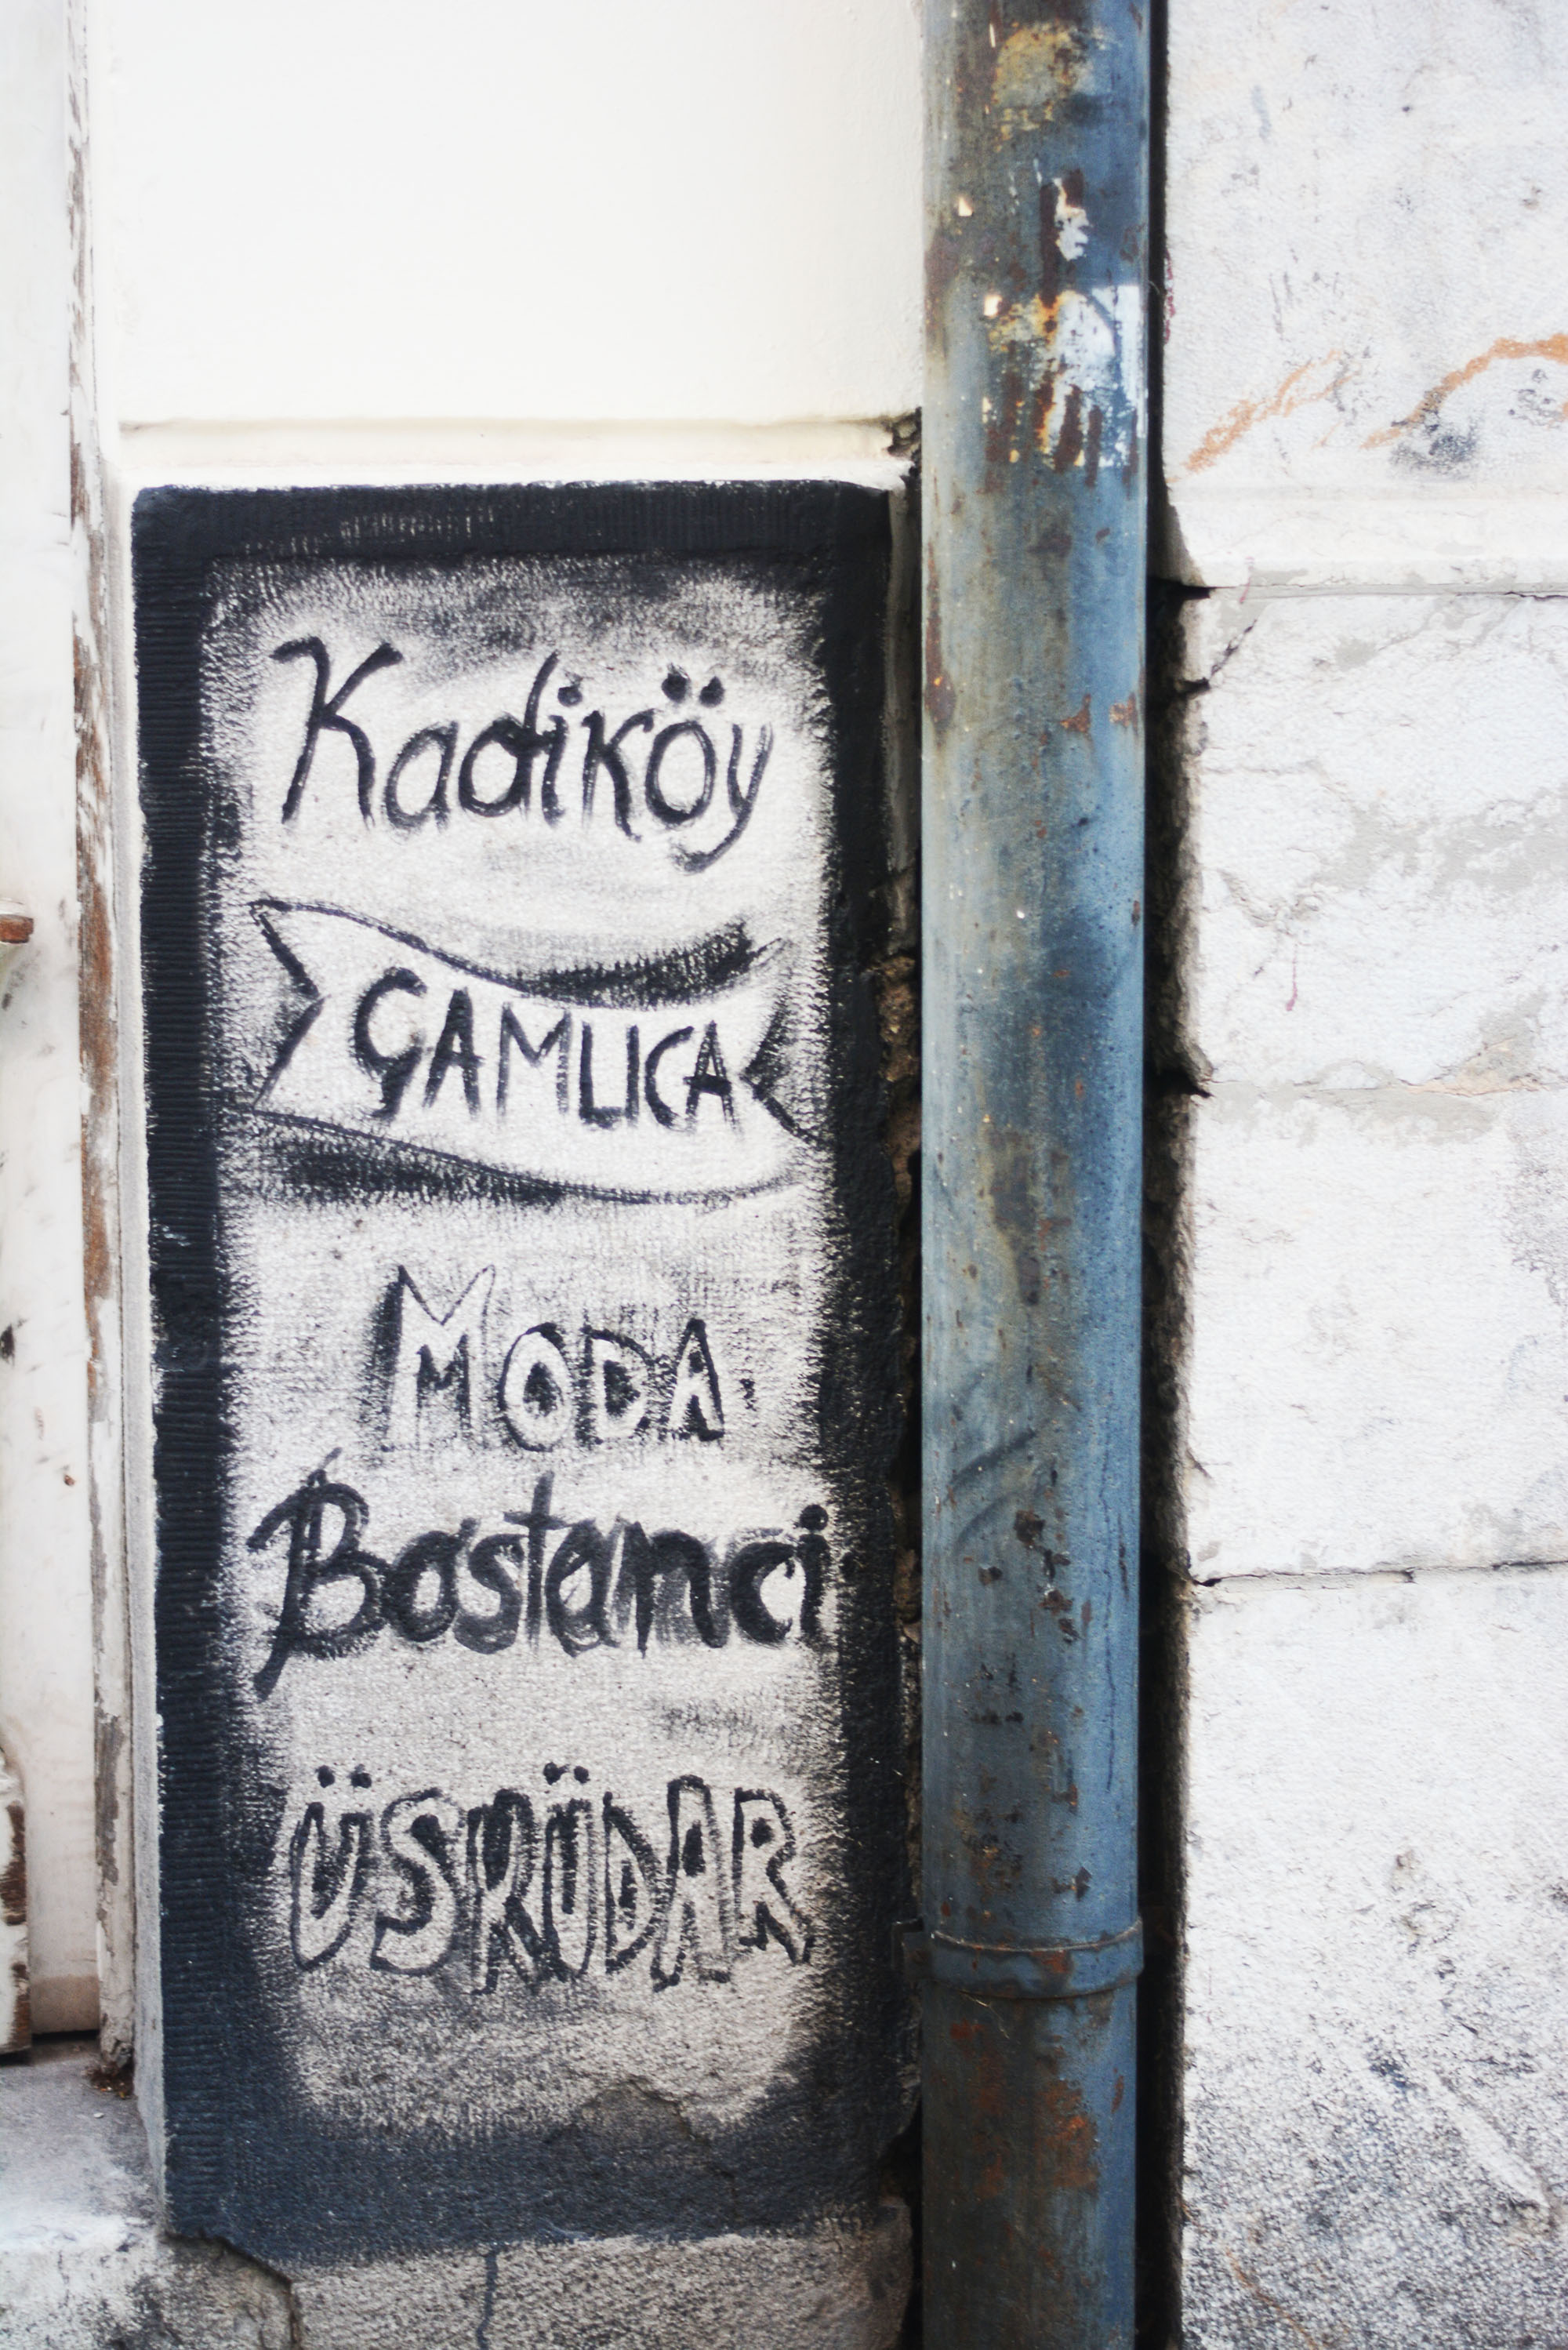 Kadiköy
ÇAMLICA
MODA
Bostanci
ÜSKÜDAR